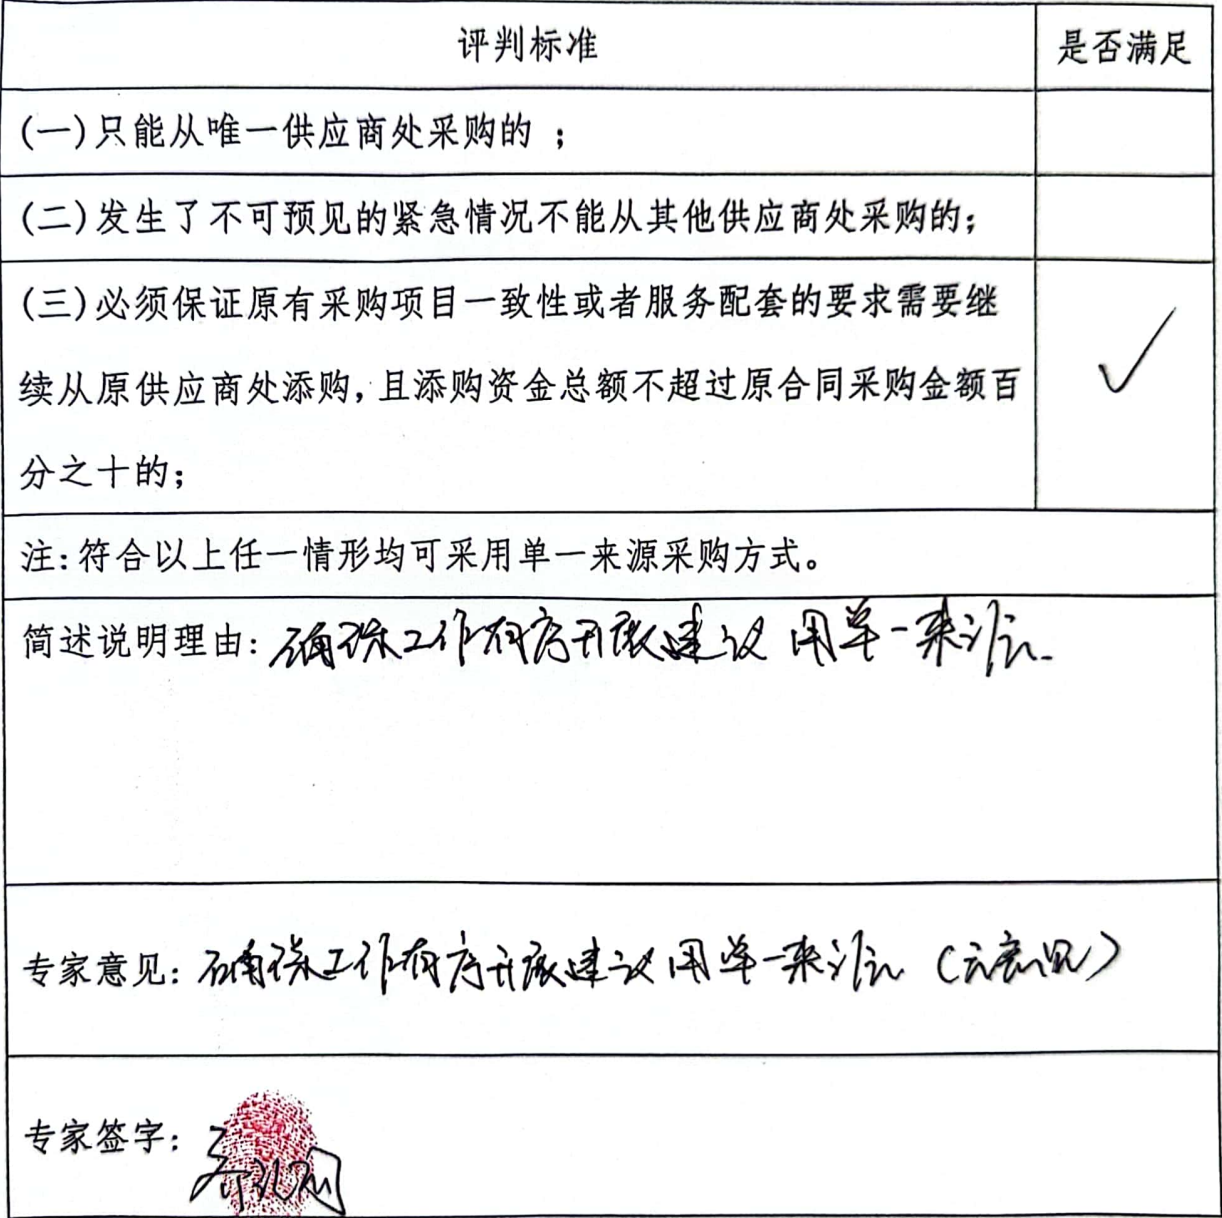 评判标准 是否满足
(一)只能从唯一供应商处采购的 ；
(二)发生了不可预见的紧急情况不能从其他供应商处采购的；
(三)必须保证原有采购项目一致性或者服务配套的要求需要继
续从原供应商处添购，且添购资金总额不超过原合同采购金额百 ✓
分之十的；
注：符合以上任一情形均可采用单一来源采购方式。
简述说明理由：确保工作有序开展建议用单一来源.
专家意见：确保工作有序开展建议用单一来源（无意见）
专家签字：